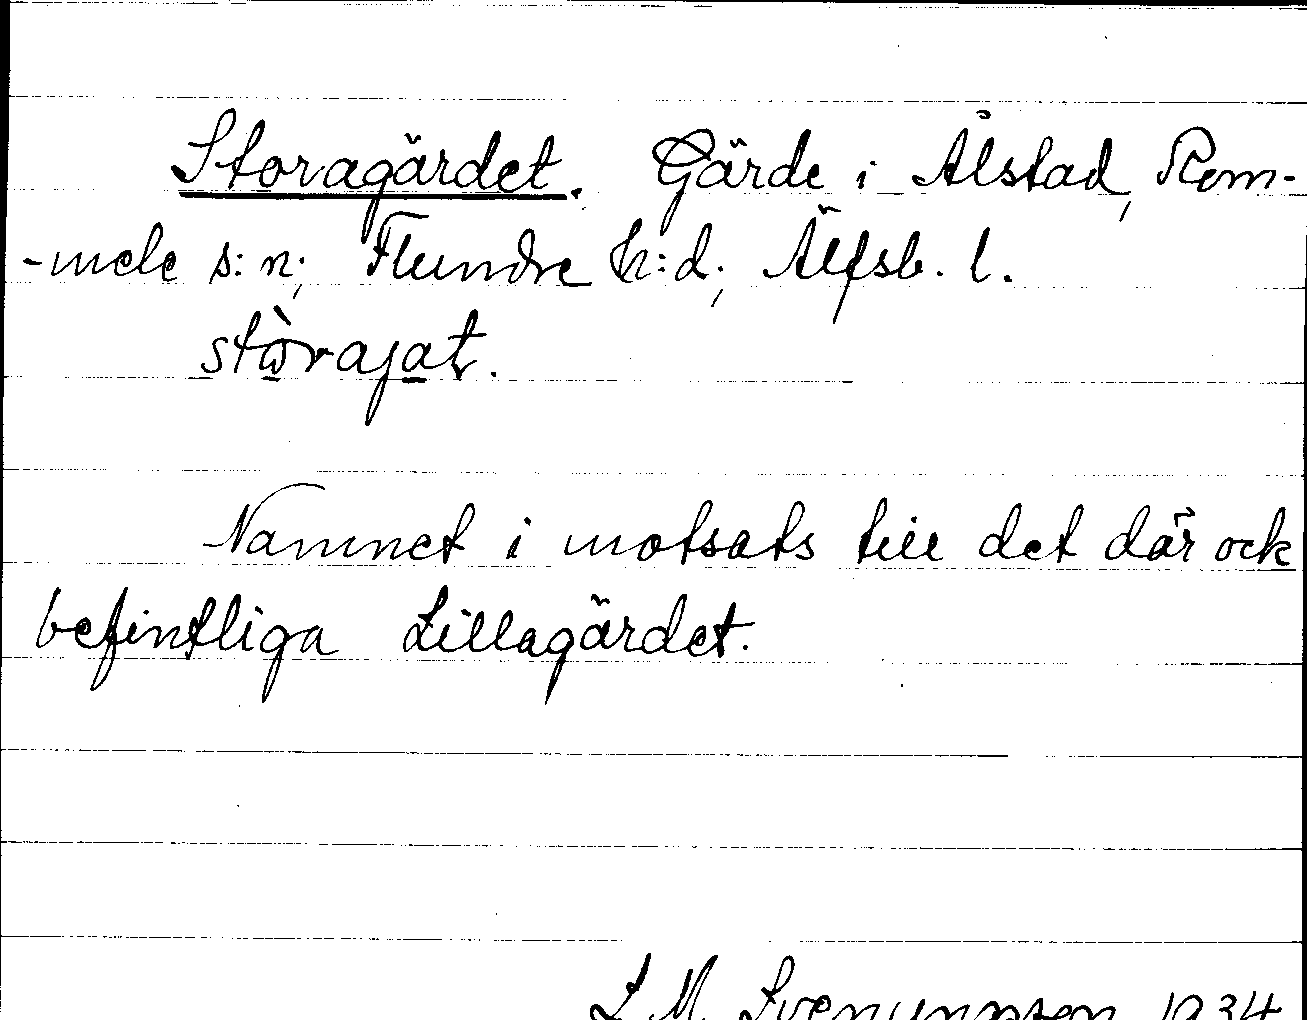 Storagärdet. Gärde i Ålstad, Rom-
-mele s:n; Flundre h:d; Älfsb. l.
stòrajat.
Namnet i motsats till det där ock
befintliga Lillagärdet.
S. M. Svenungson 1934